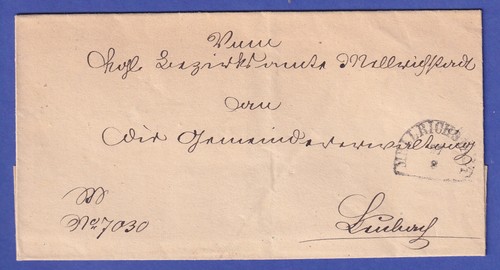 Vom
kgl. Bezirksamte Mellrichstadt
an
die Gemeindeverwaltung
MELLRICHSTADT
No 7030